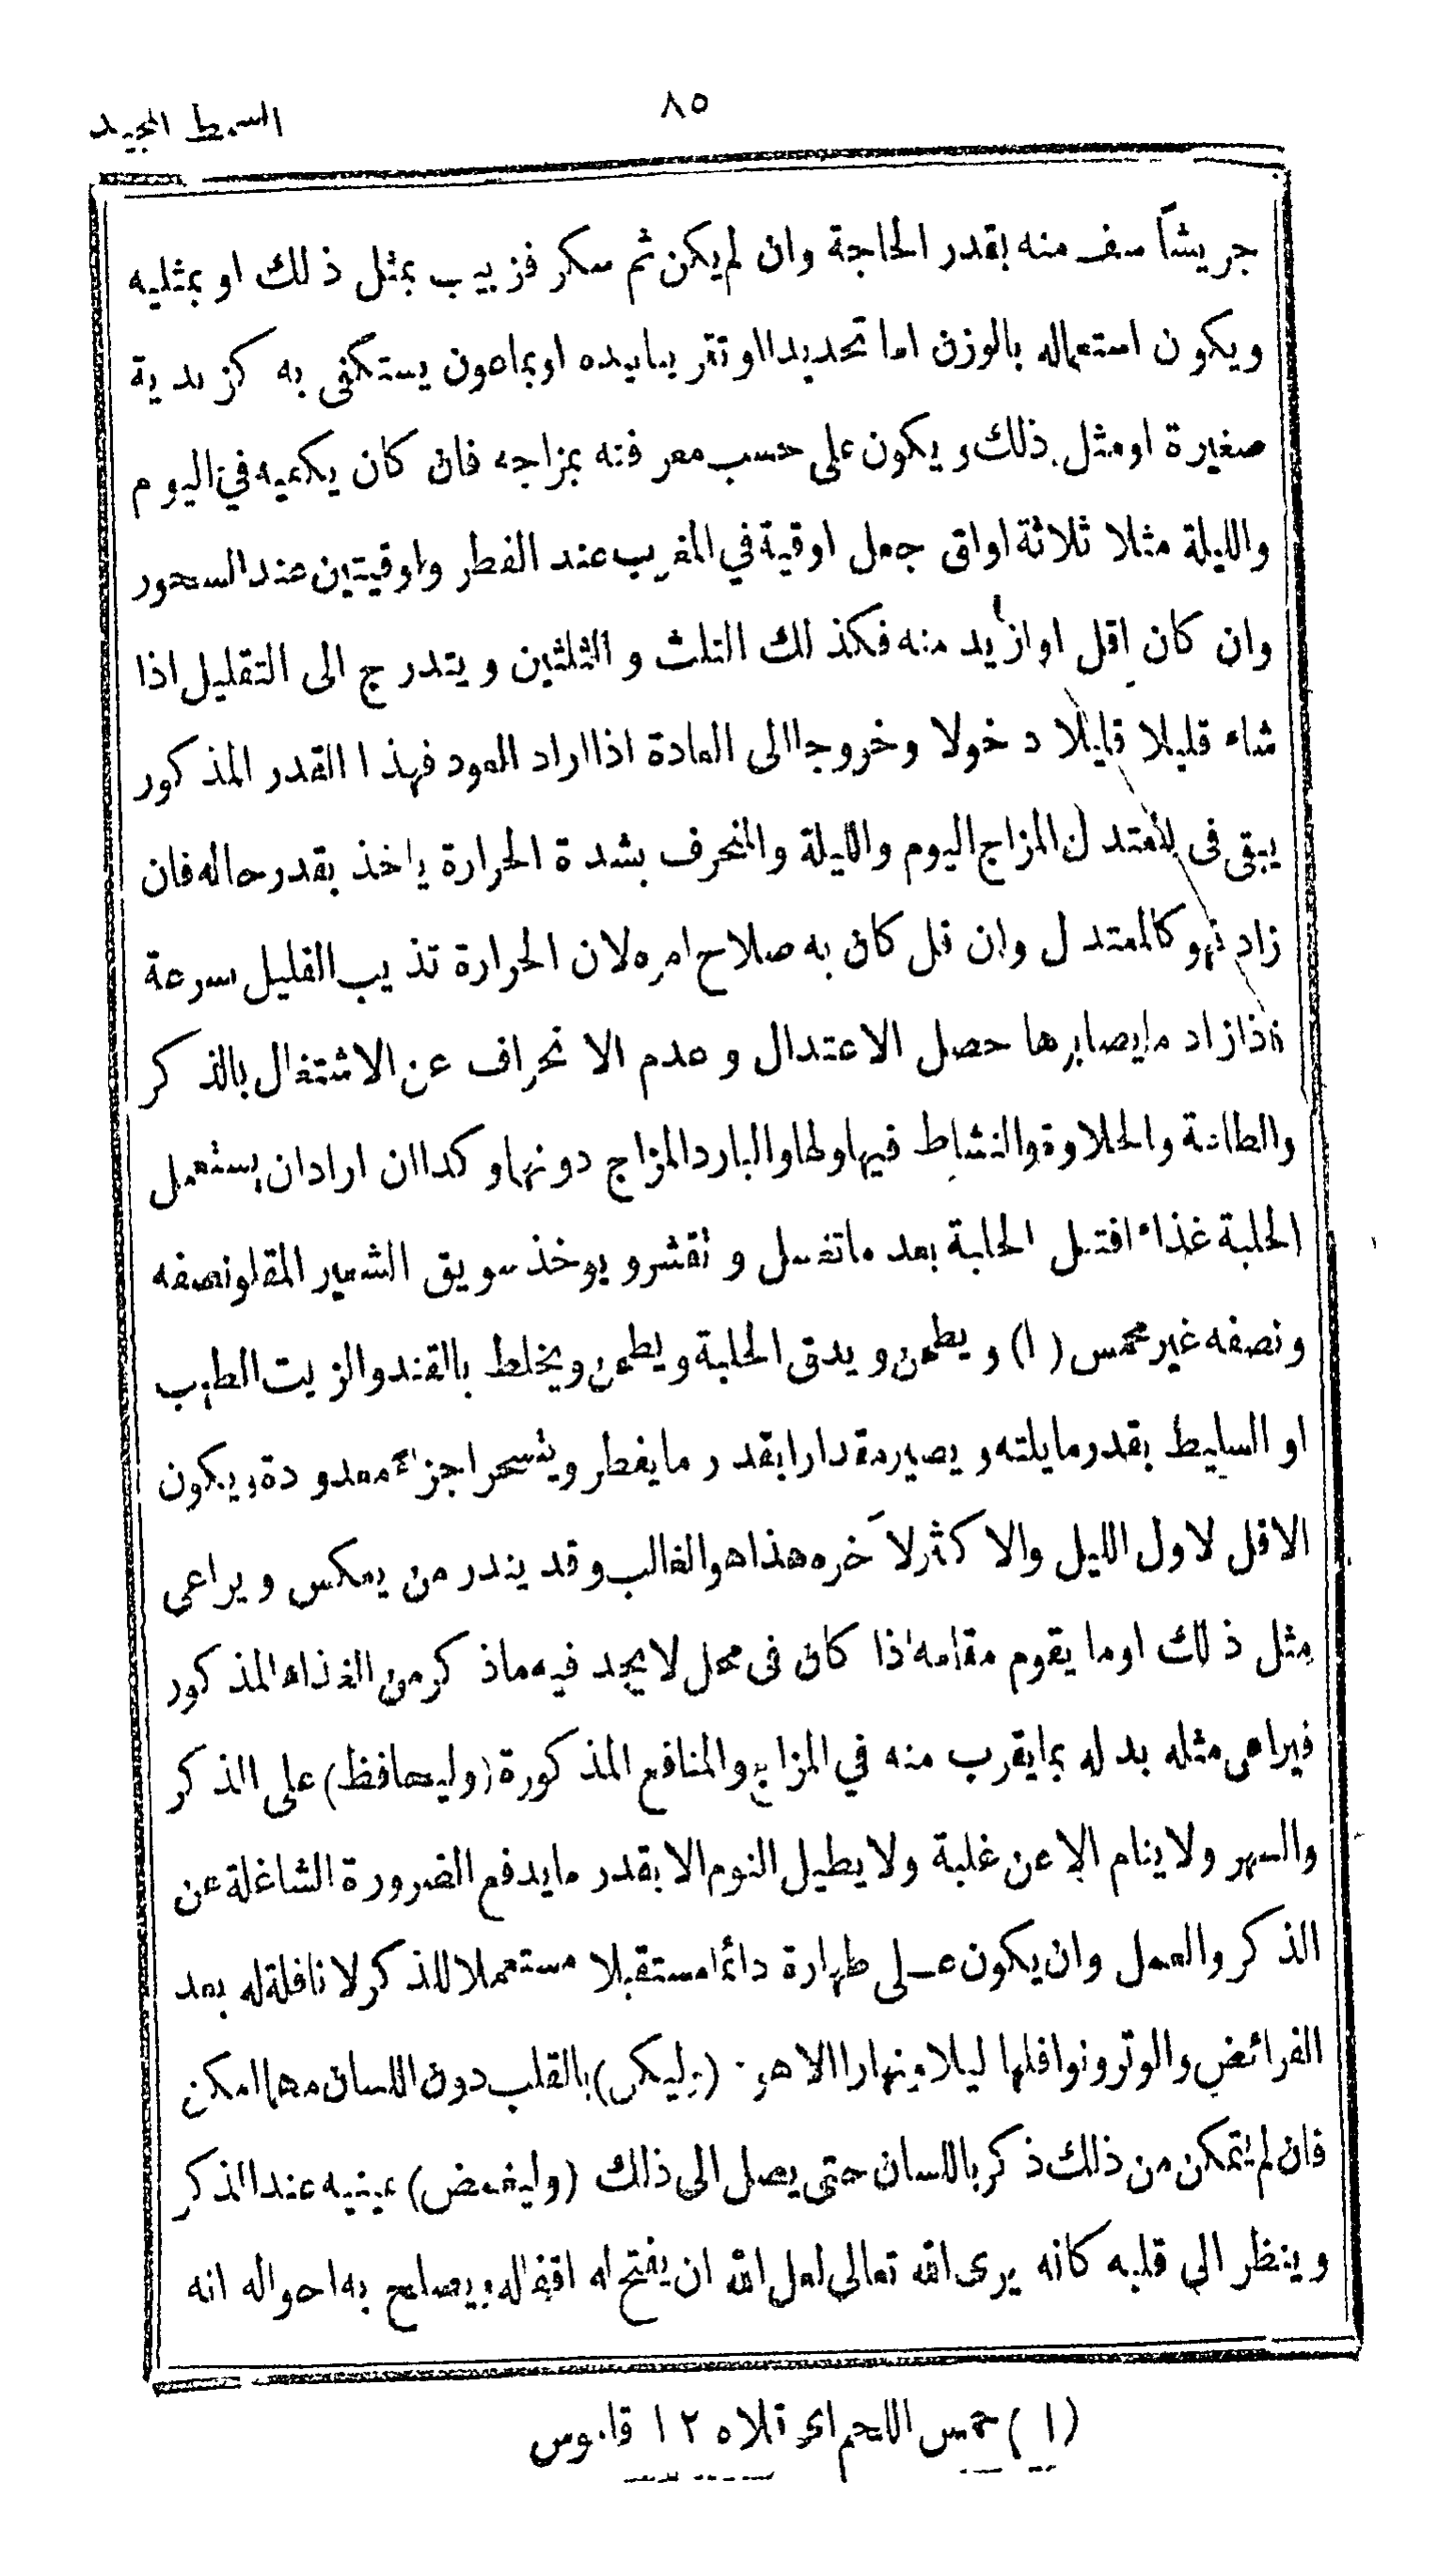 ٨٥
السمط المجيد
جريشاً سف منه بقدر الحاجة وان لم يكن ثم سكر فزبيب بمثل ذلك او بمثليه
ويكون استعماله بالوزن اما تحديدا او تقريبا بيده او بماعون يستكفى به كزبدية
صغيرة او مثل ذلك ويكون على حسب معرفته بمزاجه فان كان يكفيه في اليوم
والليلة مثلا ثلاثة اواق جعل اوقية في المغرب عند الفطر واوقيتين عند السحور
وان كان اقل او ازيد منه فكذلك الثلث و الثلثين ويتدرج الى التقليل اذا
شاء قليلا قليلا دخولا وخروجا الى العادة اذا اراد العود فهذا القدر المذكور
يبقى فى المعتدل المزاج اليوم والليلة والمنحرف بشدة الحرارة ياخذ بقدر حاله فان
زاد فهو كالمعتدل وان قل كان به صلاح امره لان الحرارة تذيب القليل سرعة
فاذا زاد ما يصابرها حصل الاعتدال وعدم الانحراف عن الاشتغال بالذكر
والحلاوة والنشاط فيها ولها والبارد المزاج دونها وكذا ان اراد ان يستعمل
الحلبة غذاء الحلبة بعد ما تغسل و تقشر و يوخذ سويق الشعير المقلو نصفه
ونصفه غير محمس (١) ويطحن ويدق الحلبة ويطحن ويخلط بالقند والزيت الطيب
او السليط بقدر ما يلته ويصير مقدارا بقدر ما يفطر ويتسحر اجزاء معدودة ويكون
الاقل لاول الليل والاكثر لآخره هذا هو الغالب وقد يندر من يعكس ويراعى
مثل ذلك او ما يقوم مقامه اذا كان فى محل لا يجد فيه ما ذكر من الغذاء المذكور
فيراعى مثله بدله بما يقرب منه في المزاج والمنافع المذكورة (وليحافظ) على الذكر
والسهر ولا ينام الا عن غلبة ولا يطيل النوم الا بقدر ما يدفع الضرورة الشاغلة عن
الذكر والعمل وان يكون على طهارة دائما مستقبلا مستعملا للذكر لا نافلة له بعد
الفرائض والوتر ونوافلها ليلا ونهارا الا هو (وليكن) بالقلب دون اللسان مهما امكن
فان لم يتمكن من ذلك ذكر باللسان حتى يصل الى ذلك (وليغمض) عينيه عند الذكر
وينظر الى قلبه كانه يرى الله تعالى لعل الله ان يفتح له اقفاله ويصلح به احواله انه
(١) حمس اللحم اى قلاه ١٢ قاموس